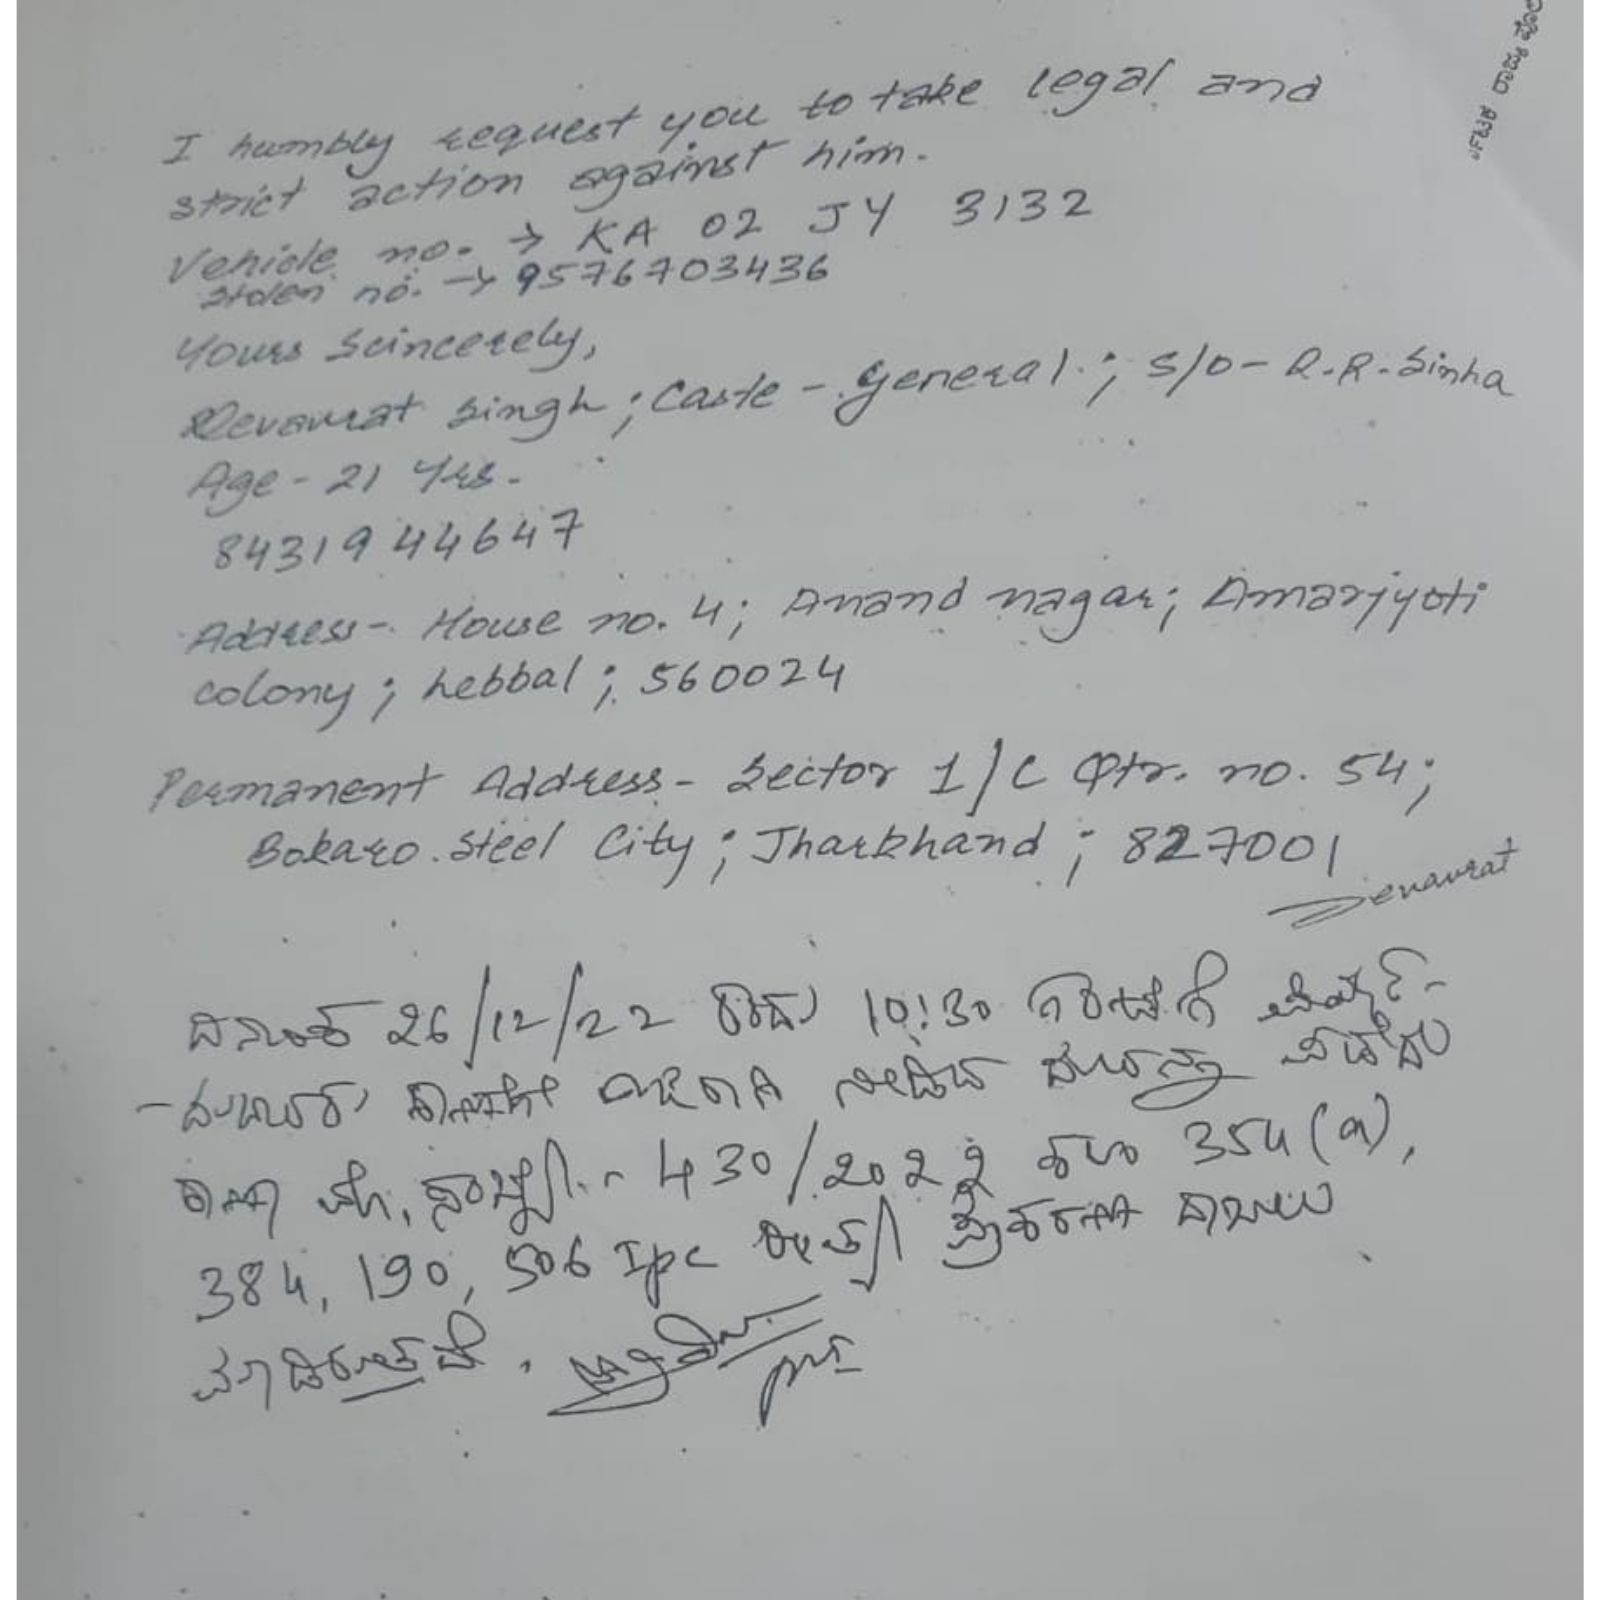 ರ್ನಾಟಕ ರಾಜ್ಯ ಪೊಲ
I humbly request you to take legal and
strict action against him.
Vehicle no. → KA 02 JY 3132
Stolen no. → 9576703436
Yours Scincerely,
Devavrat Singh ; Caste - General ; S/O - R.R. Sinha
Age - 21 Yrs.
8431944647
Address - House no. 4; Anand nagar; Amarjyoti
colony ; hebbal ; 560024
Permanent Address - Sector 1/C Qtr. no. 54;
Bokaro Steel City ; Jharkhand ; 827001
Devavrat
ದಿನಾಂಕ 26/12/22 ರಂದು 10:30 ಗಂಟೆಗೆ
ಠಾಣೆಗೆ ಹಾಜರಾಗಿ ನೀಡಿದ ದೂರನ್ನು ಪಡೆದು
ಠಾಣಾ ಮೊ. ಸಂಖ್ಯೆ - 430/2022 ಕಲಂ 354(ಎ),
384, 190, 506 Ipc ರೀತ್ಯಾ ಪ್ರಕರಣ ದಾಖಲು
ಮಾಡಿರುತ್ತದೆ.